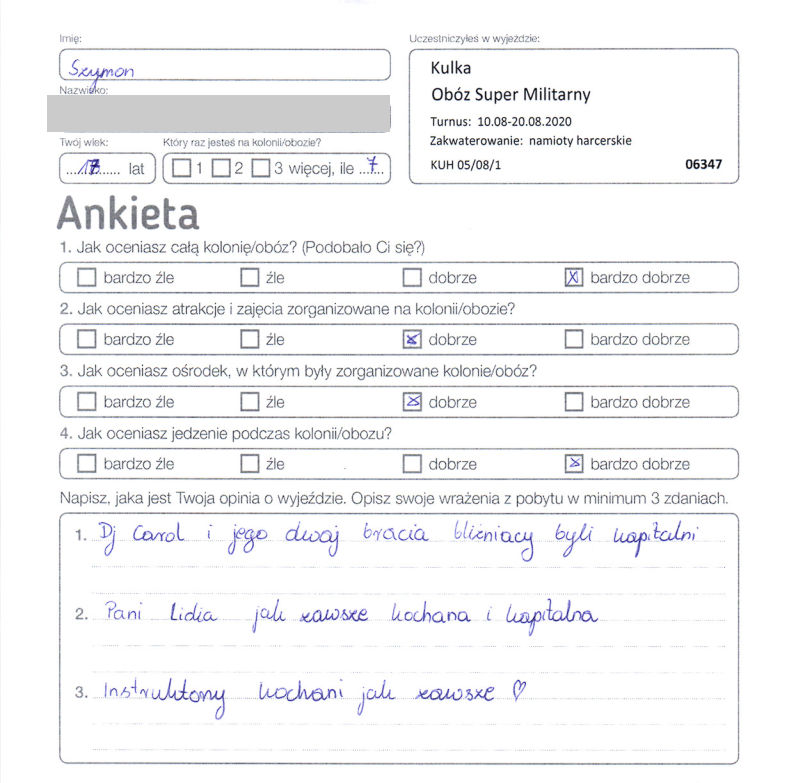 Imię:
Szymon
Nazwisko:
Twój wiek:
Który raz jesteś na kolonii/obozie?
...17...... lat
1 2 3 więcej, ile ...7...
Uczestniczyłeś w wyjeździe:
Kulka
Obóz Super Militarny
Turnus: 10.08-20.08.2020
Zakwaterowanie: namioty harcerskie
KUH 05/08/1 06347
Ankieta
1. Jak oceniasz całą kolonię/obóz? (Podobało Ci się?)
bardzo źle źle dobrze bardzo dobrze
2. Jak oceniasz atrakcje i zajęcia zorganizowane na kolonii/obozie?
bardzo źle źle dobrze bardzo dobrze
3. Jak oceniasz ośrodek, w którym były zorganizowane kolonie/obóz?
bardzo źle źle dobrze bardzo dobrze
4. Jak oceniasz jedzenie podczas kolonii/obozu?
bardzo źle źle dobrze bardzo dobrze
Napisz, jaka jest Twoja opinia o wyjeździe. Opisz swoje wrażenia z pobytu w minimum 3 zdaniach.
1. Dj Carol i jego dwaj bracia bliźniacy byli kapitalni
2. Pani Lidia jak zawsze kochana i kapitalna
3. Instruktorzy kochani jak zawsze ♡